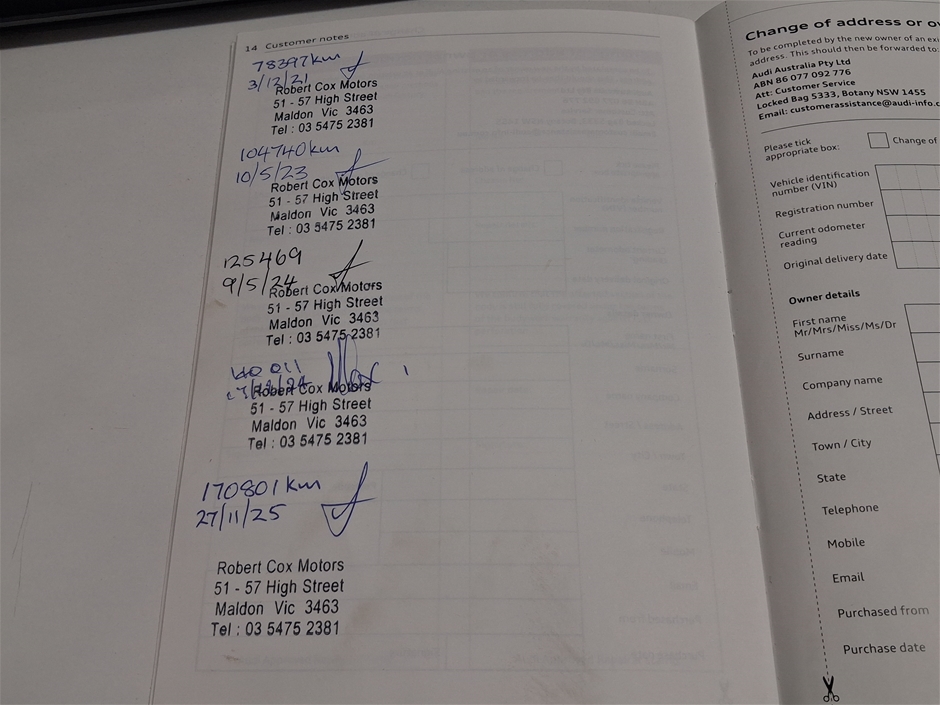 14 Customer notes
78397km
3/12/21
Robert Cox Motors
51 - 57 High Street
Maldon Vic 3463
Tel : 03 5475 2381
104740km
10/5/23
Robert Cox Motors
51 - 57 High Street
Maldon Vic 3463
Tel : 03 5475 2381
125469
9/5/24
Robert Cox Motors
51 - 57 High Street
Maldon Vic 3463
Tel : 03 5475 2381
140 011
Robert Cox Motors
51 - 57 High Street
Maldon Vic 3463
Tel : 03 5475 2381
170801km
27/11/25
Robert Cox Motors
51 - 57 High Street
Maldon Vic 3463
Tel : 03 5475 2381
Change of address or
To be completed by the new owner of an
address. This should then be forwarded to:
Audi Australia Pty Ltd
ABN 86 077 092 776
Att: Customer Service
Locked Bag 5333, Botany NSW 1455
Email: customerassistance@audi-info.c
Please tick
appropriate box:
Change of
Vehicle identification
number (VIN)
Registration number
Current odometer
reading
Original delivery date
Owner details
First name
Mr/Mrs/Miss/Ms/Dr
Surname
Company name
Address / Street
Town / City
State
Telephone
Mobile
Email
Purchased from
Purchase date